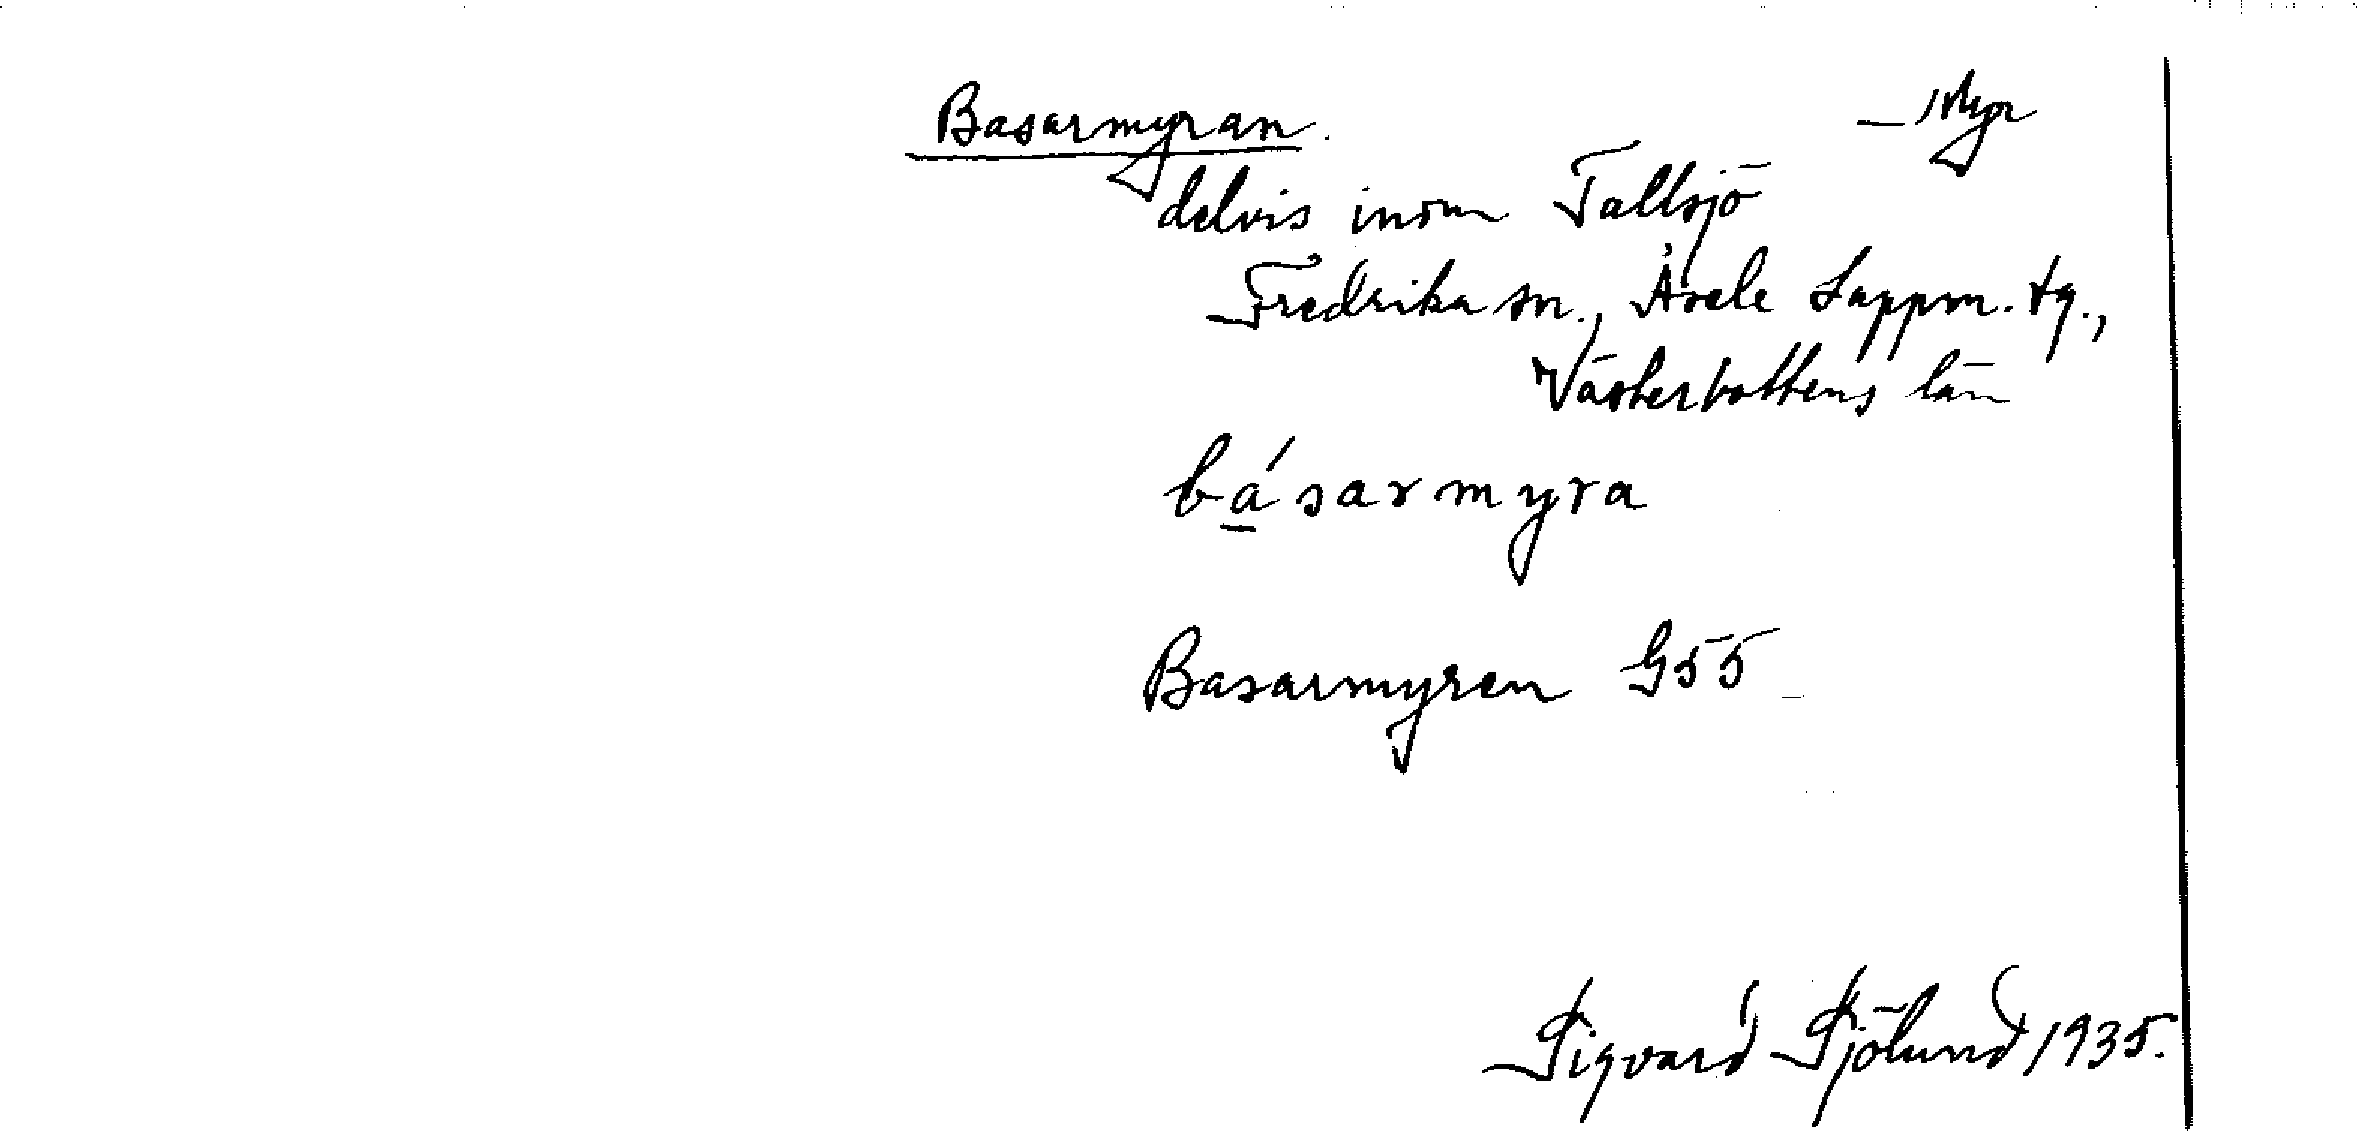 Basarmyran. – Myr
delvis inom Tallsjö
Fredrika sn., Åsele Lappm. tg.,
Västerbottens län
bá̱sarmyra
Basarmyren G55
Sigvard Sjölund 1935.